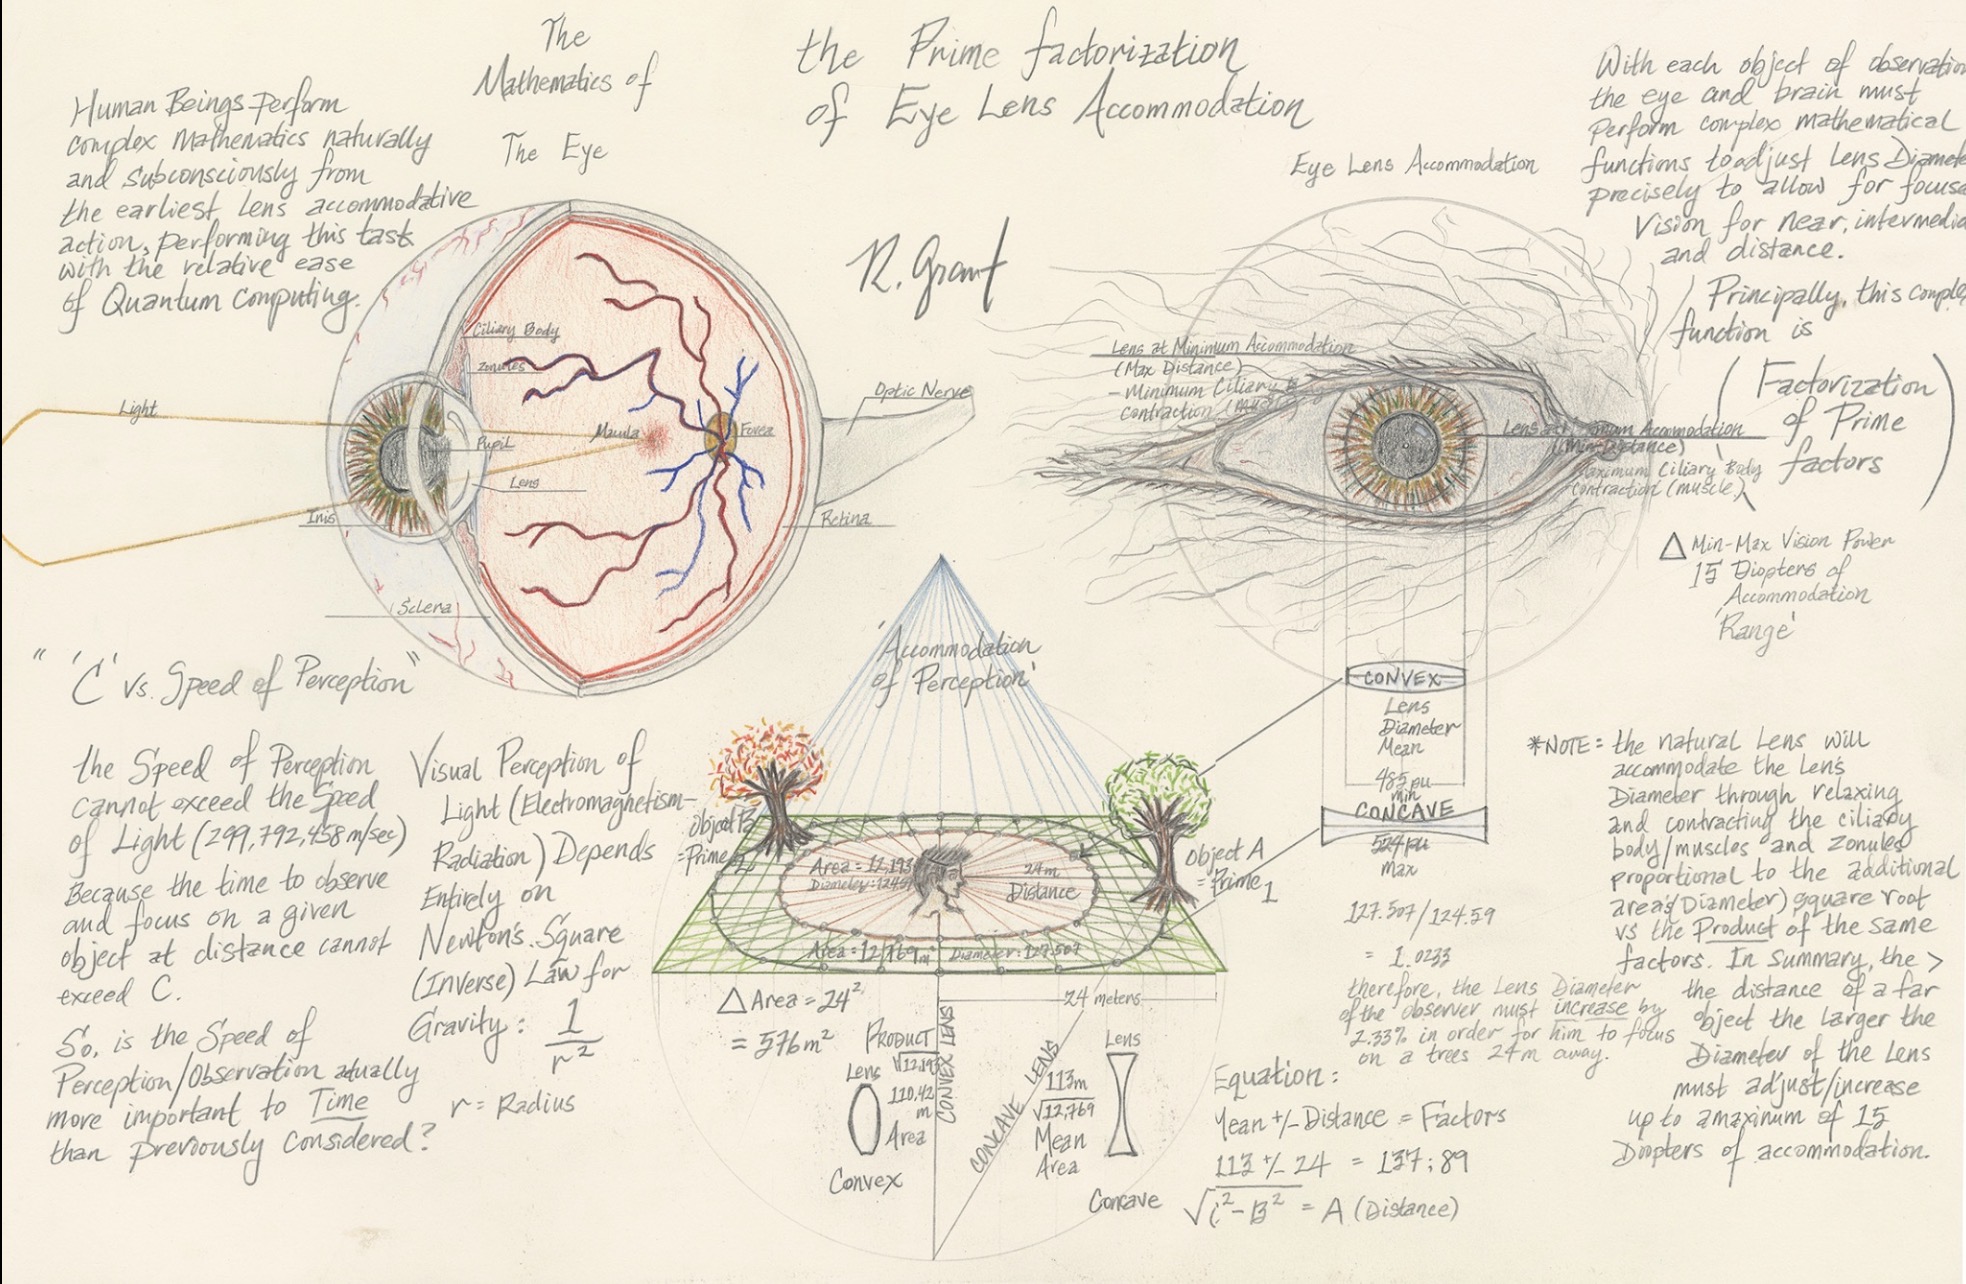 The
Mathematics of
The Eye
the Prime factorization
of Eye Lens Accommodation
R. Grant
Human Beings perform
complex Mathematics naturally
and subconsciously from
the earliest Lens accommodative
action, performing this task
with the relative ease
of Quantum Computing.
Ciliary Body
Zonules
Light
Macula
Fovea
Optic Nerve
Pupil
Lens
Iris
Retina
Sclera
Eye Lens Accommodation
With each object of observation
the eye and brain must
perform complex mathematical
functions to adjust Lens
precisely to allow for
Vision for near,
and distance.
Principally, this
function is
(Factorization
of Prime
factors)
Lens at Minimum Accommodation
(Max Distance)
- Minimum Ciliary
contraction
Lens at Accommodation
Maximum Ciliary Body
contraction (muscle)
△ Min-Max Vision Power
15 Diopters of
Accommodation
'Range'
" 'C' vs. Speed of Perception "
the Speed of Perception
cannot exceed the Speed
of Light (299,792,458 m/sec)
Because the time to observe
and focus on a given
object at distance cannot
exceed C.
So, is the Speed of
Perception/Observation atually
more important to Time
than previously considered?
Visual Perception of
Light (Electromagnetism-
Radiation) Depends
Entirely on
Newton's Square
(Inverse) Law for
Gravity: 1/r²
r = Radius
'Accommodation
of Perception'
Object B
= Prime
Object A
= Prime
1
Area = 12,193
Diameter:
24m
Distance
Area = 12,769 m²
Diameter: 127.507
△ Area = 24²
= 576m²
24 meters
PRODUCT
√12,193
110.42
m
Area
Lens
Convex
CONVEX LENS
CONCAVE LENS
113m
√12,769
Mean
Area
Lens
Concave
CONVEX
Lens
Diameter
Mean
485 pu
min
CONCAVE
524 pu
max
127.507/124.59
= 1.0233
therefore, the Lens Diameter
of the observer must increase by
2.33% in order for him to focus
on a trees 24m away.
Equation:
Mean +/- Distance = Factors
113 +/- 24 = 137; 89
√C²-B² = A (Distance)
*NOTE: the natural Lens will
accommodate the Lens
Diameter through relaxing
and contracting the ciliary
body/muscles and zonules
proportional to the additional
area's (Diameter) square root
vs the Product of the same
factors. In Summary, the >
the distance of a far
object the larger the
Diameter of the Lens
must adjust/increase
up to a maxinum of 15
Diopters of accommodation.